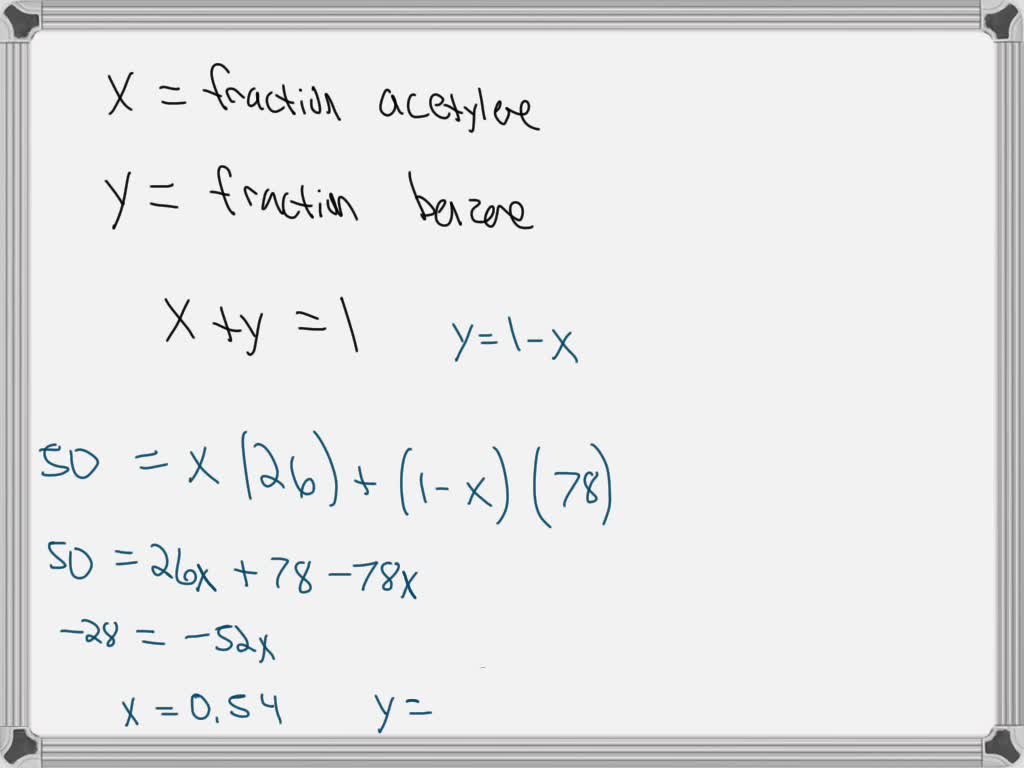 x = fraction acetylene
y = fraction benzene
x + y = 1 y = 1 - x
50 = x (26) + (1 - x) (78)
50 = 26x + 78 - 78x
-28 = -52x
x = 0.54 y =